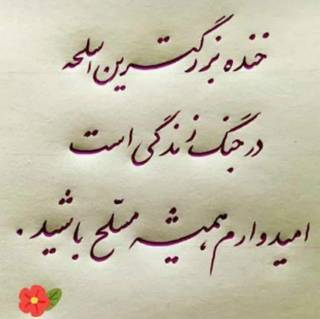 خنده بزرگترین اسلحه
در جنگ زندگی است
امیدوارم همیشه مسلّح باشید .